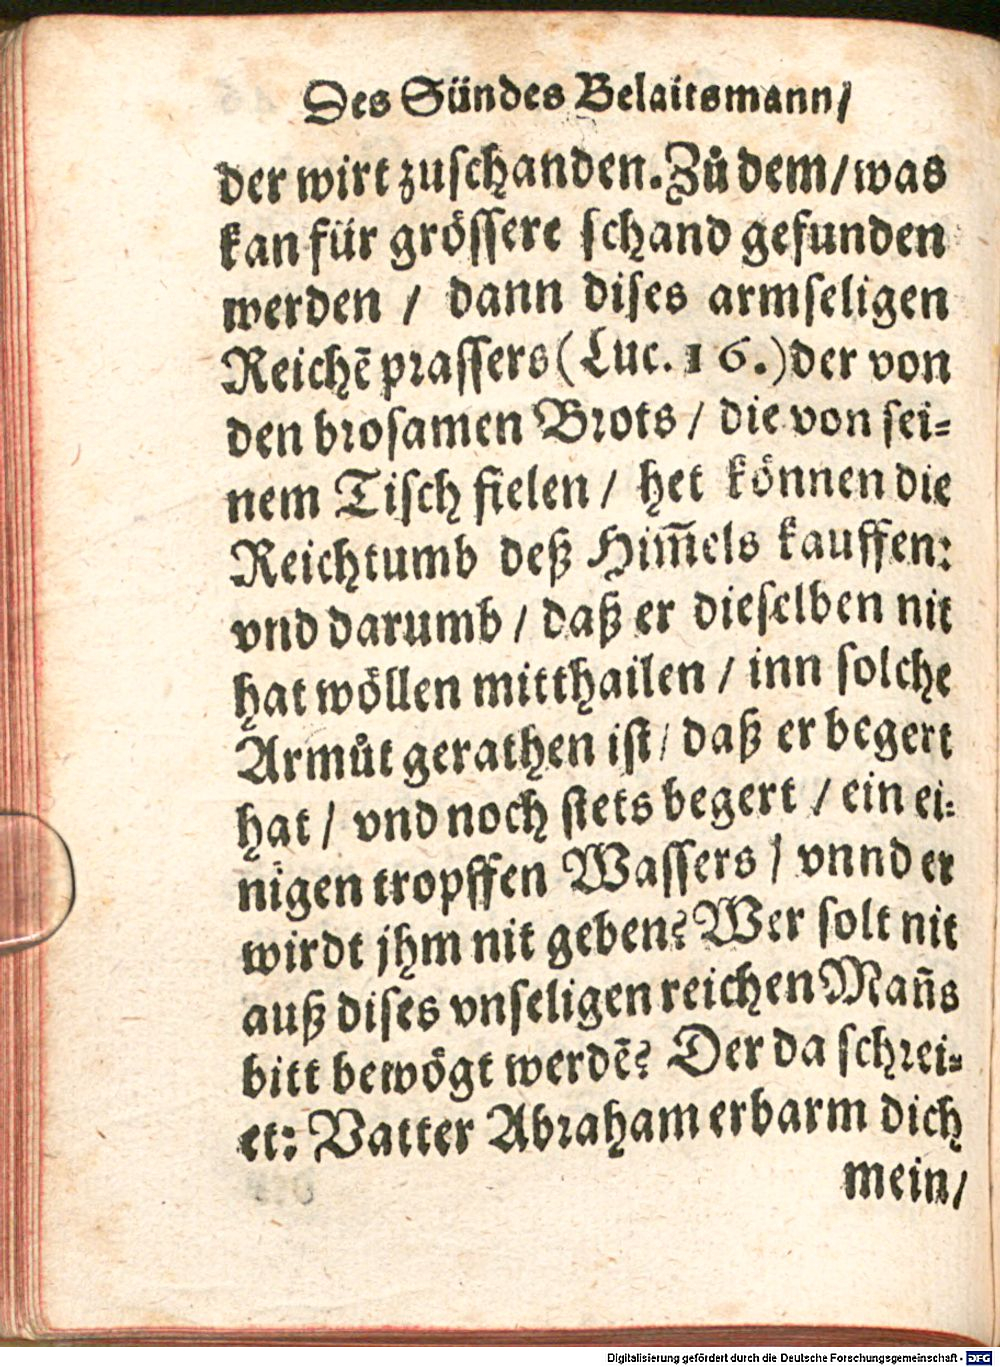 Des Sündes Belaitsmann/
der wirt zuschanden. Zů dem/ was
kan für grössere schand gefunden
werden / dann dises armseligen
Reichē prassers (Luc. 16.) der von
den brosamen Brots / die von sei-
nem Tisch fielen / het können die
Reichtumb deß Him̅els kauffen:
vnd darumb / daß er dieselben nit
hat wöllen mitthailen / inn solche
Armůt gerathen ist / daß er begert
hat / vnd noch stets begert / ein ei-
nigen tropffen Wassers / vnnd er
wirdt jhm nit geben? Wer solt nit
auß dises vnseligen reichen Man̄s
bitt bewögt werdē? Der da schrei-
et: Vatter Abraham erbarm dich
mein/
Digitalisierung gefördert durch die Deutsche Forschungsgemeinschaft - DFG